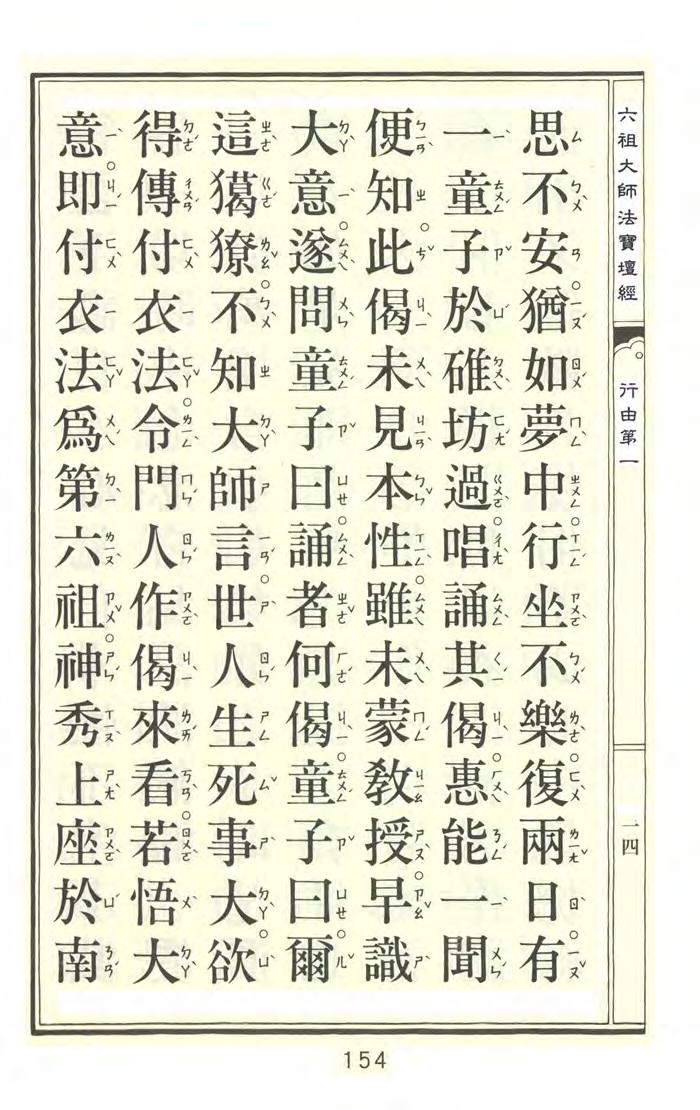 六祖大師法寶壇經
行由第一
一四
思不安。猶如夢中。行坐不樂。復兩日。有
一童子於碓坊過。唱誦其偈。惠能一聞
便知。此偈未見本性。雖未蒙教授。早識
大意。遂問童子曰。誦者何偈。童子曰。爾
這獦獠。不知大師言。世人生死事大。欲
得傳付衣法。令門人作偈來看。若悟大
意。即付衣法爲第六祖。神秀上座於南
154